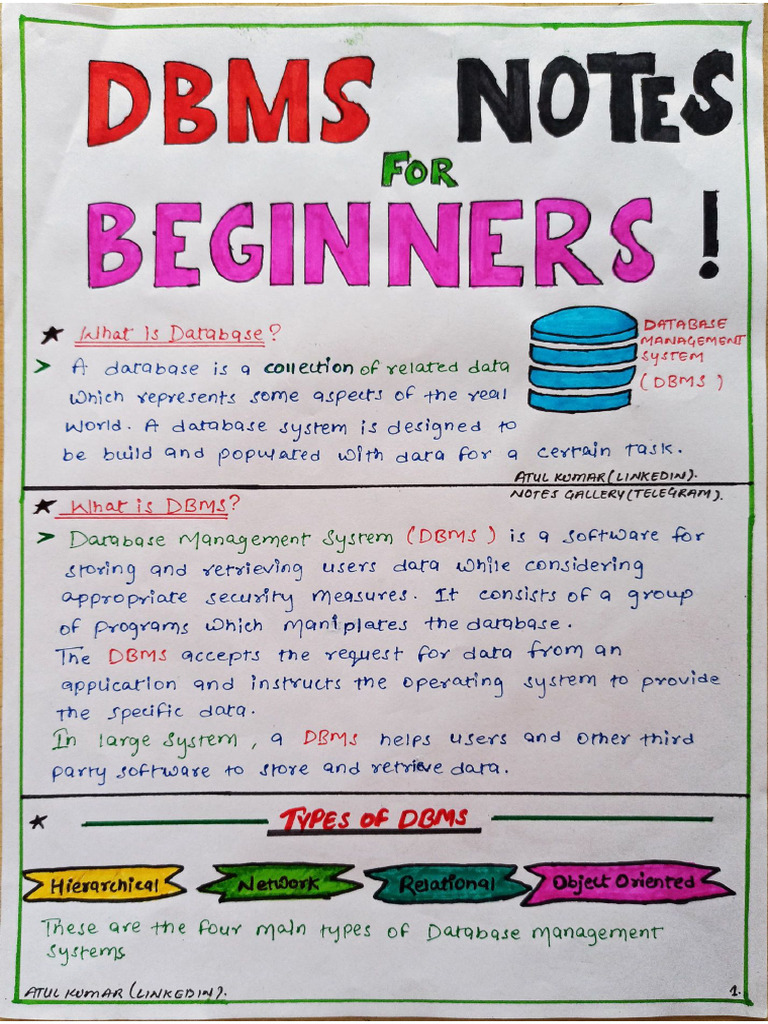 DBMS NOTES
FOR
BEGINNERS !
★ What is Database?
➤ A database is a collection of related data
which represents some aspects of the real
world. A database system is designed to
be build and populated with data for a certain task.
DATABASE
MANAGEMENT
SYSTEM
(DBMS)
ATUL KUMAR (LINKEDIN).
NOTES GALLERY (TELEGRAM).
★ What is DBMS?
➤ Database Management System (DBMS) is a software for
storing and retrieving users data while considering
appropriate security measures. It consists of a group
of programs which maniplates the database.
The DBMS accepts the request for data from an
application and instructs the operating system to provide
the specific data.
In large system, a DBMS helps users and other third
party software to store and retrieve data.
★ TYPES OF DBMS
Hierarchical Network Relational Object Oriented
These are the four main types of Database management
systems
ATUL KUMAR (LINKEDIN). 1.